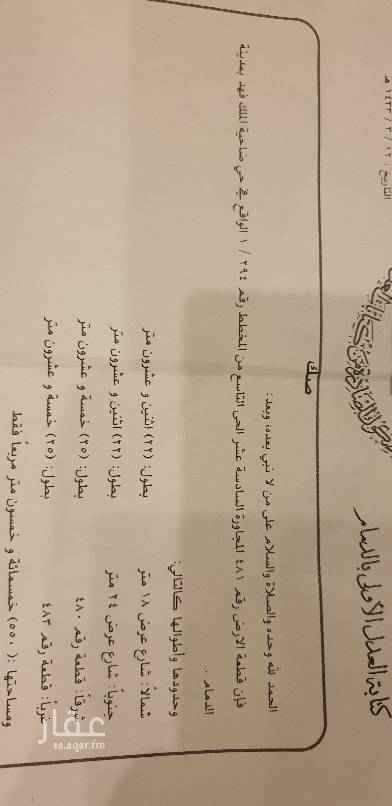 كتابة العدل الأولى بالدمام
التاريخ: ١٢ / ٢ / ١٤٣٣ هـ
صك
الحمد لله وحده والصلاة والسلام على من لا نبي بعده، وبعد:
فإن قطعة الارض رقم ٤٨١ المجاورة السادسة عشر الحى التاسع من المخطط رقم ٢٩٤ / ١ الواقع في حي ضاحية الملك فهد بمدينة
الدمام .
وحدودها وأطوالها كالتالي:
شمالاً: شارع عرض ١٨ متر بطول: (٢٢) اثنين و عشرون متر
جنوباً: شارع عرض ٢٤ متر بطول: (٢٢) اثنين و عشرون متر
شرقاً: قطعة رقم ٤٨٠ بطول: (٢٥) خمسة و عشرون متر
غرباً: قطعة رقم ٤٨٣ بطول: (٢٥) خمسة و عشرون متر
ومساحتها : ( ٥٥٠ ) خمسمائة و خمسون متر مربعاً فقط
عقار
sa.aqar.fm